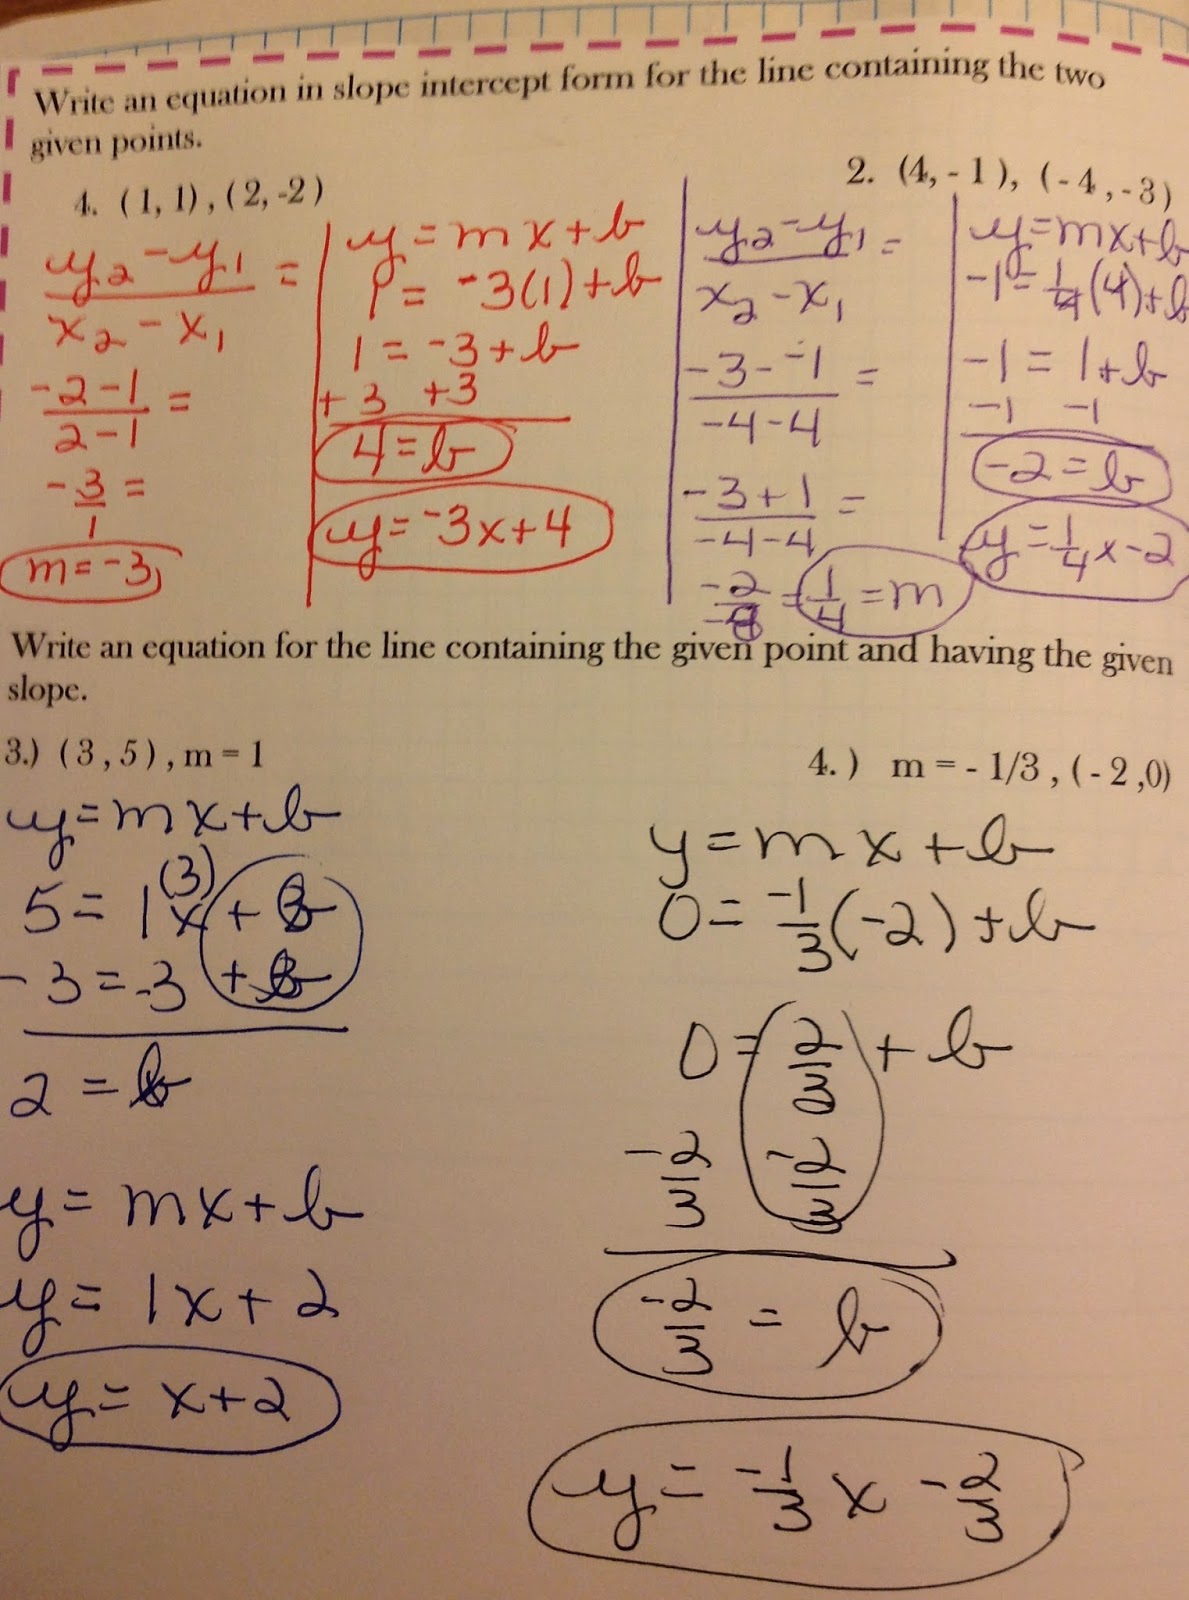 Write an equation in slope intercept form for the line containing the two
given points.
1. (1, 1), (2, -2)
y₂ - y₁ =
x₂ - x₁
-2 - 1 =
2 - 1
-3 =
1
m = -3
y = mx + b
1 = -3(1) + b
1 = -3 + b
+3 +3
4 = b
y = -3x + 4
2. (4, -1), (-4, -3)
y₂ - y₁ =
x₂ - x₁
-3 - -1 =
-4 - 4
-3 + 1 =
-4 - 4
-2/-8 = 1/4 = m
y = mx + b
-1 = 1/4(4) + b
-1 = 1 + b
-1 -1
-2 = b
y = 1/4x - 2
Write an equation for the line containing the given point and having the given
slope.
3.) (3, 5), m = 1
y = mx + b
5 = 1x(3) + b
-3 = -3 + b
2 = b
y = mx + b
y = 1x + 2
y = x + 2
4.) m = - 1/3, (-2,0)
y = mx + b
0 = -1/3(-2) + b
0 = 2/3 + b
-2/3 -2/3
-2/3 = b
y = -1/3 x - 2/3